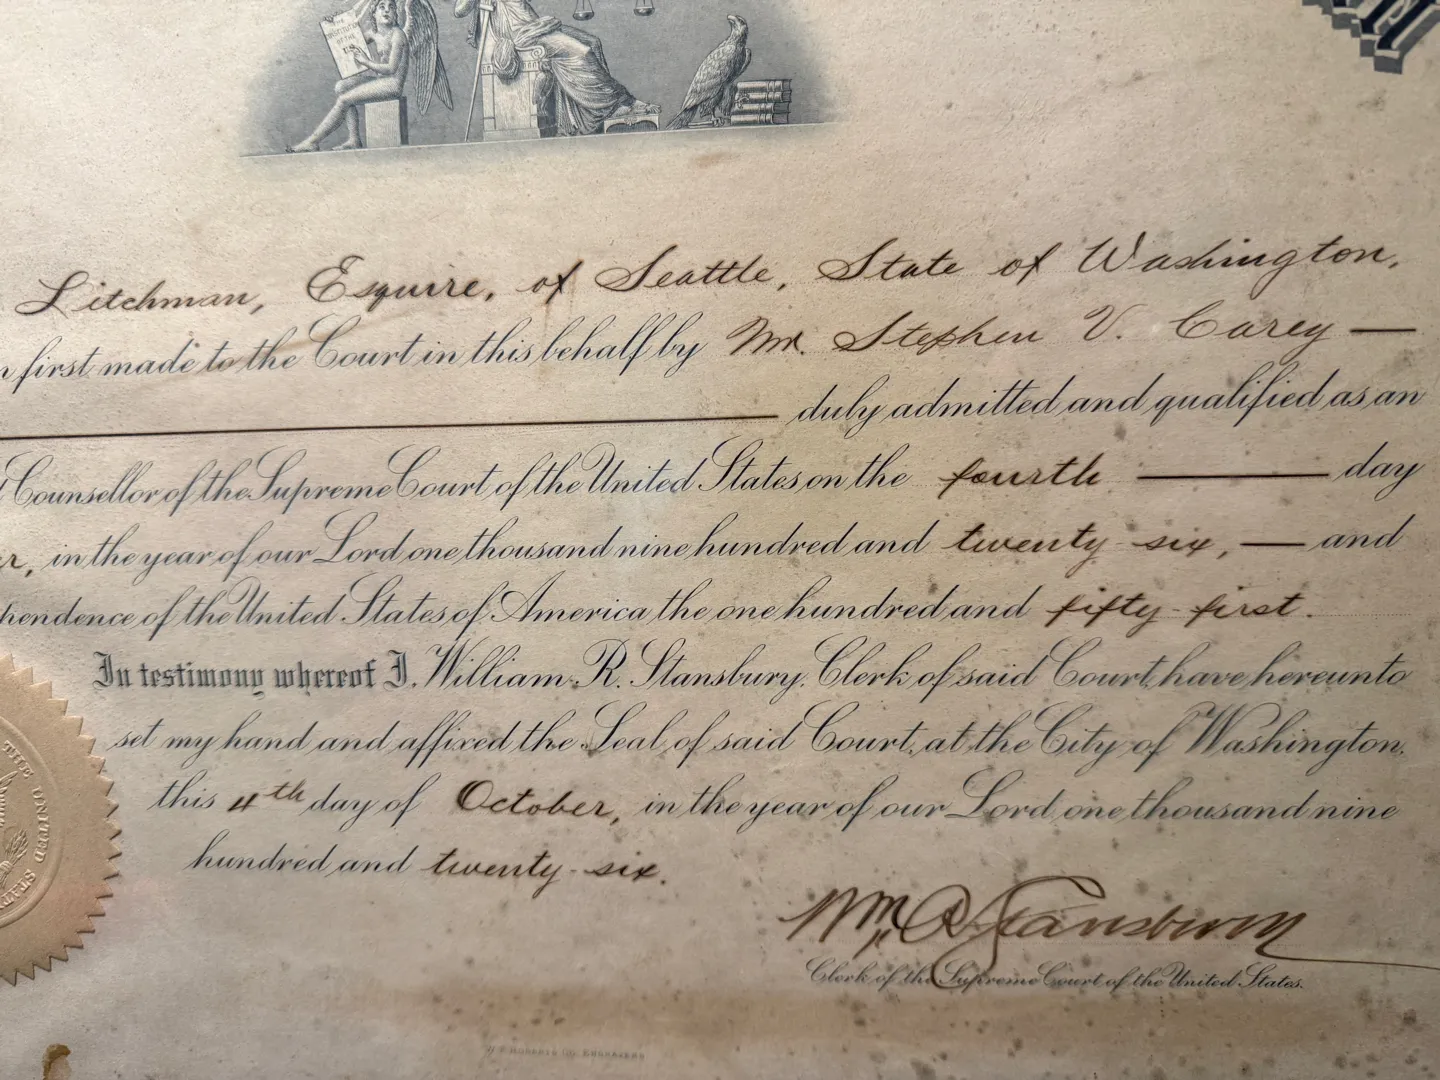 Litchman, Esquire, of Seattle, State of Washington,
first made to the Court in this behalf by Mr. Stephen V. Carey
duly admitted and qualified as an
Counsellor of the Supreme Court of the United States on the fourth day
in the year of our Lord one thousand nine hundred and twenty-six, and
pendence of the United States of America the one hundred and fifty-first.
In testimony whereof I, William R. Stansbury, Clerk of said Court, have hereunto
set my hand and affixed the Seal of said Court, at the City of Washington,
this 4th day of October, in the year of our Lord one thousand nine
hundred and twenty-six.
THE UNITED STAT
Wm R Stansbury
Clerk of the Supreme Court of the United States.